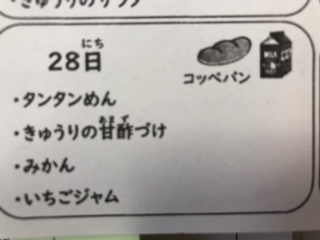 ・きゅうりのサラダ
28日
にち
コッペパン
MILK
・タンタンめん
・きゅうりの甘酢づけ
あまず
・みかん
・いちごジャム